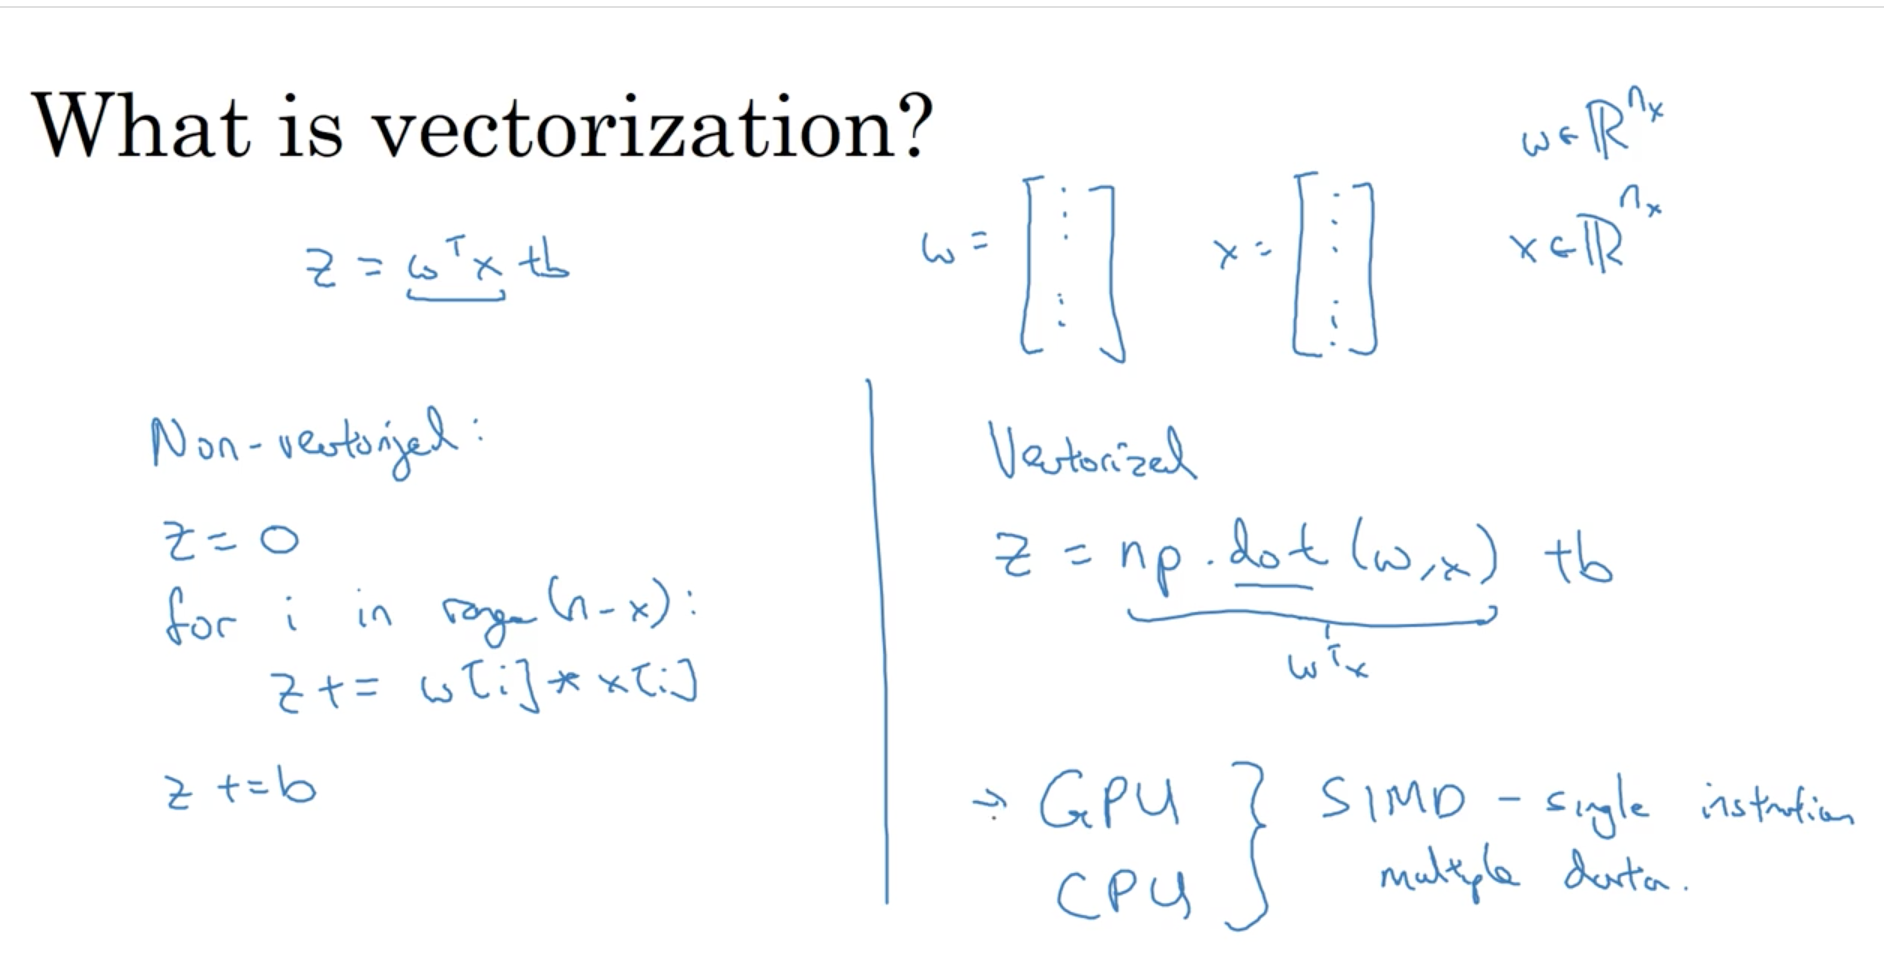 What is vectorization?
z = wᵀx + b
w = [⋮ ⋮] x = [⋮ ⋮]
w ∈ ℝⁿˣ
x ∈ ℝⁿˣ
Non-vectorized:
z = 0
for i in range(n-x):
z += w[i] * x[i]
z += b
Vectorized
z = np.dot(w,x) + b
wᵀx
→ GPU } SIMD - single instruction
CPU multiple data.